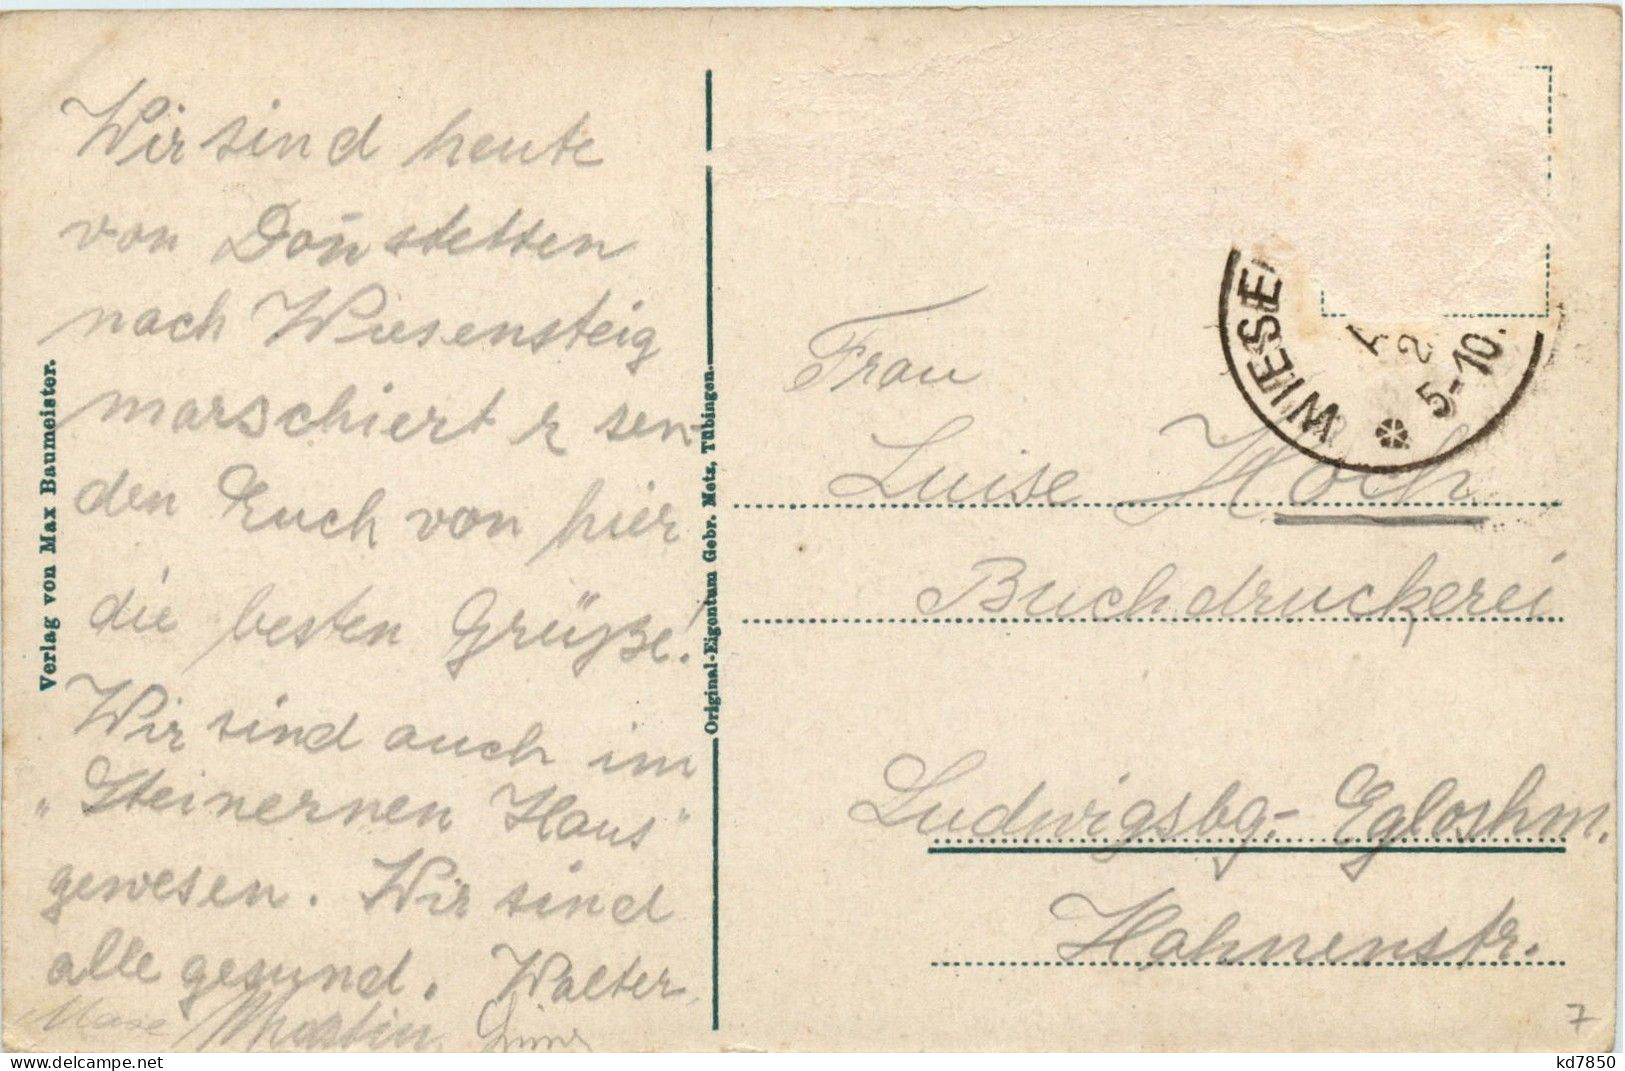 Wir sind heute
von Doñstetten
nach Wiesensteig
marschiert u. sen-
den Euch von hier
die besten Grüße!
Wir sind auch im
„Steinernen Haus"
gewesen. Wir sind
alle gesund. Walter,
Martin
Verlag von Max Baumeister.
Original-Eigentum Gebr. Metz, Tübingen.
WIESE
A
2
5-10.
Frau
Luise Hoch
Buchdruckerei
Ludwigsbg.- Egloshm.
Hahnenstr.
7
kd7850